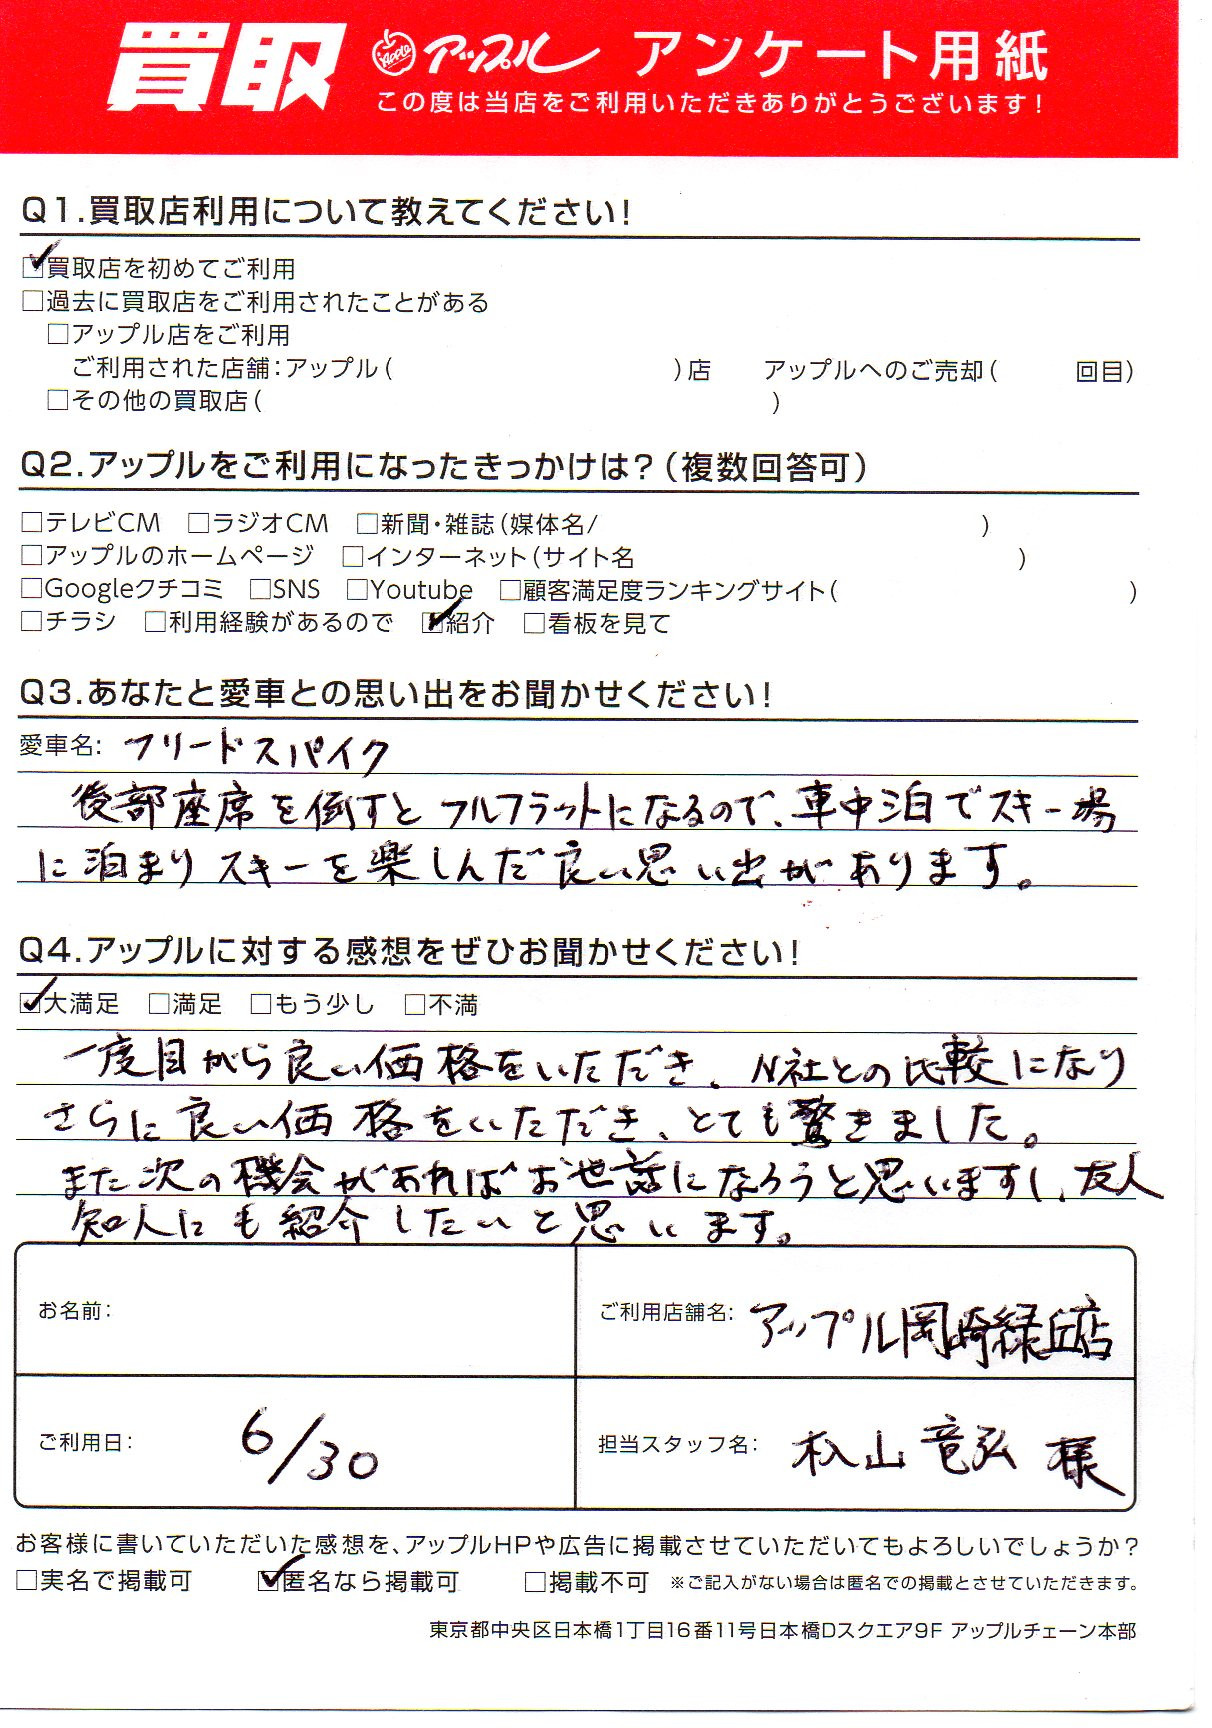 買取 Apple アップル アンケート用紙
この度は当店をご利用いただきありがとうございます!
Q1.買取店利用について教えてください!
☑買取店を初めてご利用
□過去に買取店をご利用されたことがある
□アップル店をご利用
ご利用された店舗:アップル( )店 アップルへのご売却( 回目)
□その他の買取店( )
Q2.アップルをご利用になったきっかけは?(複数回答可)
□テレビCM □ラジオCM □新聞・雑誌(媒体名/ )
□アップルのホームページ □インターネット(サイト名 )
□Googleクチコミ □SNS □Youtube □顧客満足度ランキングサイト( )
□チラシ □利用経験があるので ☑紹介 □看板を見て
Q3.あなたと愛車との思い出をお聞かせください!
愛車名: フリードスパイク
後部座席を倒すとフルフラットになるので、車中泊でスキー場
に泊まりスキーを楽しんだ良い思い出があります。
Q4.アップルに対する感想をぜひお聞かせください!
☑大満足 □満足 □もう少し □不満
一度目から良い価格をいただき、N社との比較になり
さらに良い価格をいただき、とても驚きました。
また次の機会があればお世話になろうと思いますし、友人
知人にも紹介したいと思います。
お名前: ご利用店舗名: アップル岡崎緑丘店
ご利用日: 6/30 担当スタッフ名: 松山竜弘 様
お客様に書いていただいた感想を、アップルHPや広告に掲載させていただいてもよろしいでしょうか?
□実名で掲載可 ☑匿名なら掲載可 □掲載不可 ※ご記入がない場合は匿名での掲載とさせていただきます。
東京都中央区日本橋1丁目16番11号日本橋Dスクエア9F アップルチェーン本部